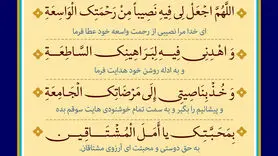 اللَّهُمَّ اجْعَلْ لِي فِيهِ نَصِيباً مِنْ رَحْمَتِكَ الْوَاسِعَةِ
ای خدا مرا نصیبی از رحمت واسعه خود عطا فرما
وَ اهْدِنِي فِيهِ لِبَرَاهِينِكَ السَّاطِعَةِ
و به ادله روشن خود هدایت فرما
وَ خُذْ بِنَاصِيَتِي إِلَى مَرْضَاتِكَ الْجَامِعَةِ
و پیشانیم را بگیر و به سمت تمام خوشنودی هایت سوقم بده
بِمَحَبَّتِكَ يَا أَمَلَ الْمُشْتَاقِينَ
به حق دوستی و محبتت ای آرزوی مشتاقان.